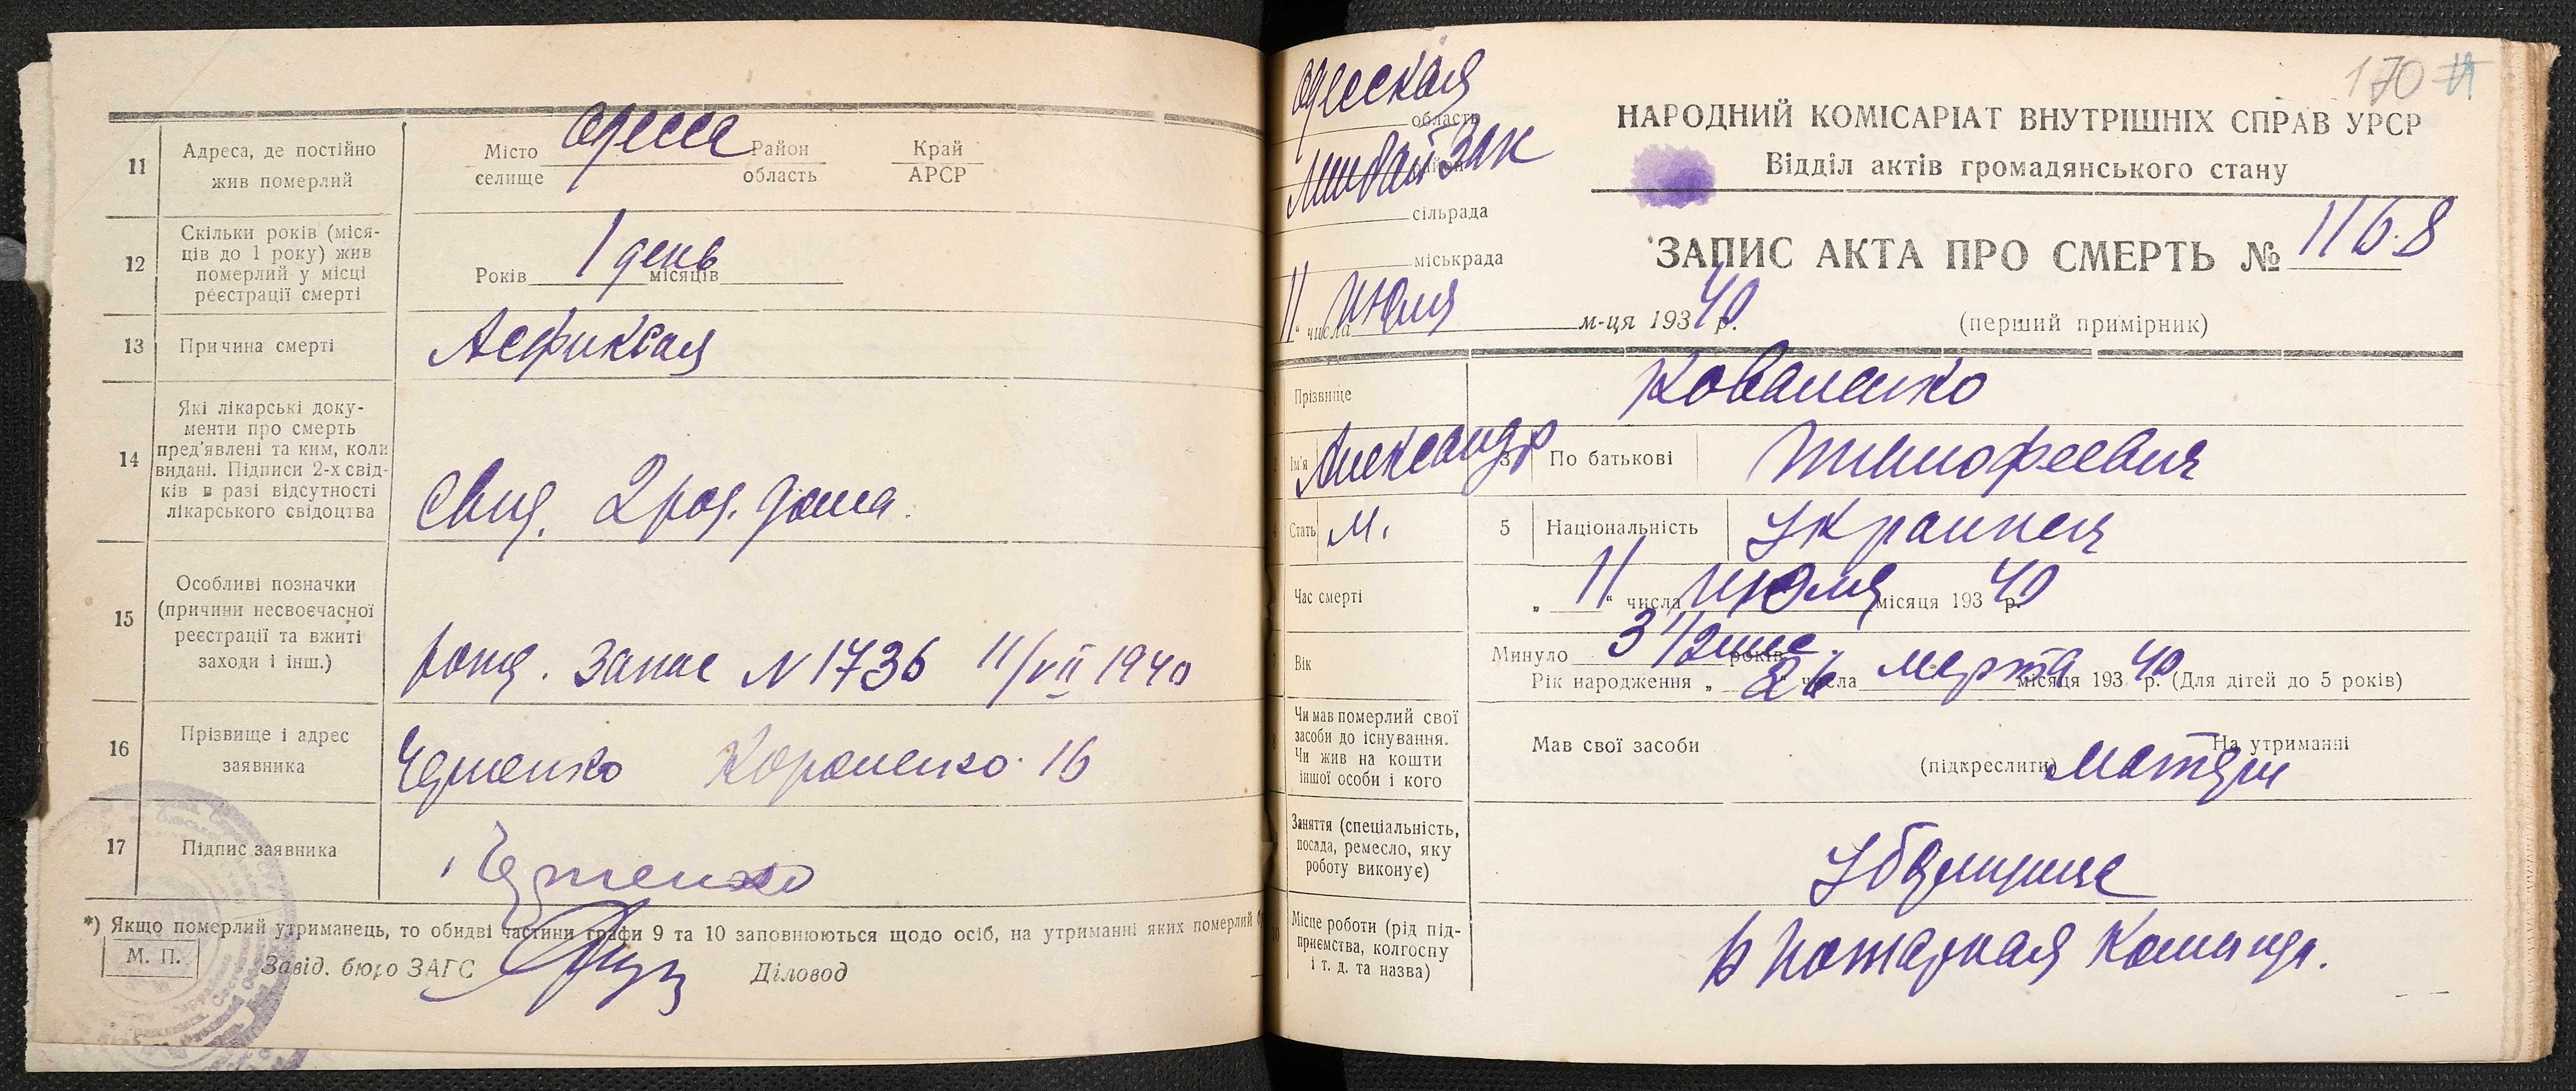 11
Адреса, де постійно
жив померлий
Місто
селище
Одесса
Район
область
Край
АРСР
12
Скільки років (міся-
ців до 1 року) жив
померлий у місці
реєстрації смерті
Років 1 день місяців
13
Причина смерті
Асфиксая
14
Які лікарські доку-
менти про смерть
пред'явлені та ким, коли
видані. Підписи 2-х свід-
ків в разі відсутності
лікарського свідоцтва
Свид. 2 род. дома.
15
Особливі позначки
(причини несвоєчасної
реєстрації та вжиті
заходи і інш.)
рожд. запис N 1736 11/VII 1940
16
Прізвище і адрес
заявника
Короленко 16
17
Підпис заявника
*) Якщо померлий утриманець, то обидві частини графи 9 та 10 заповнюються щодо осіб, на утриманні яких померлий
М. П.
Завід. бюро ЗАГС
Діловод
170
Одесская
область
сільрада
міськрада
11 " числа июля м-ця 1940 р.
НАРОДНИЙ КОМІСАРІАТ ВНУТРІШНІХ СПРАВ УРСР
Відділ актів громадянського стану
ЗАПИС АКТА ПРО СМЕРТЬ № 1168
(перший примірник)
Прізвище
Коваленко
Ім'я
Александр
3
По батькові
Тимофеевич
Стать
М.
5
Національність
Украинец
Час смерті
" 11 " числа июля місяця 193 40 р.
Вік
Минуло 3 1/2 мес. років
Рік народження " 26 " числа марта місяця 193 40 р. (Для дітей до 5 років)
Чи мав померлий свої
засоби до існування.
Чи жив на кошти
іншої особи і кого
Мав свої засоби
(підкреслити)
На утриманні
матери
Заняття (спеціальність,
посада, ремесло, яку
роботу виконує)
Уборщице
10
Місце роботи (рід під-
приємства, колгоспу
і т. д. та назва)
в пожарная команда.